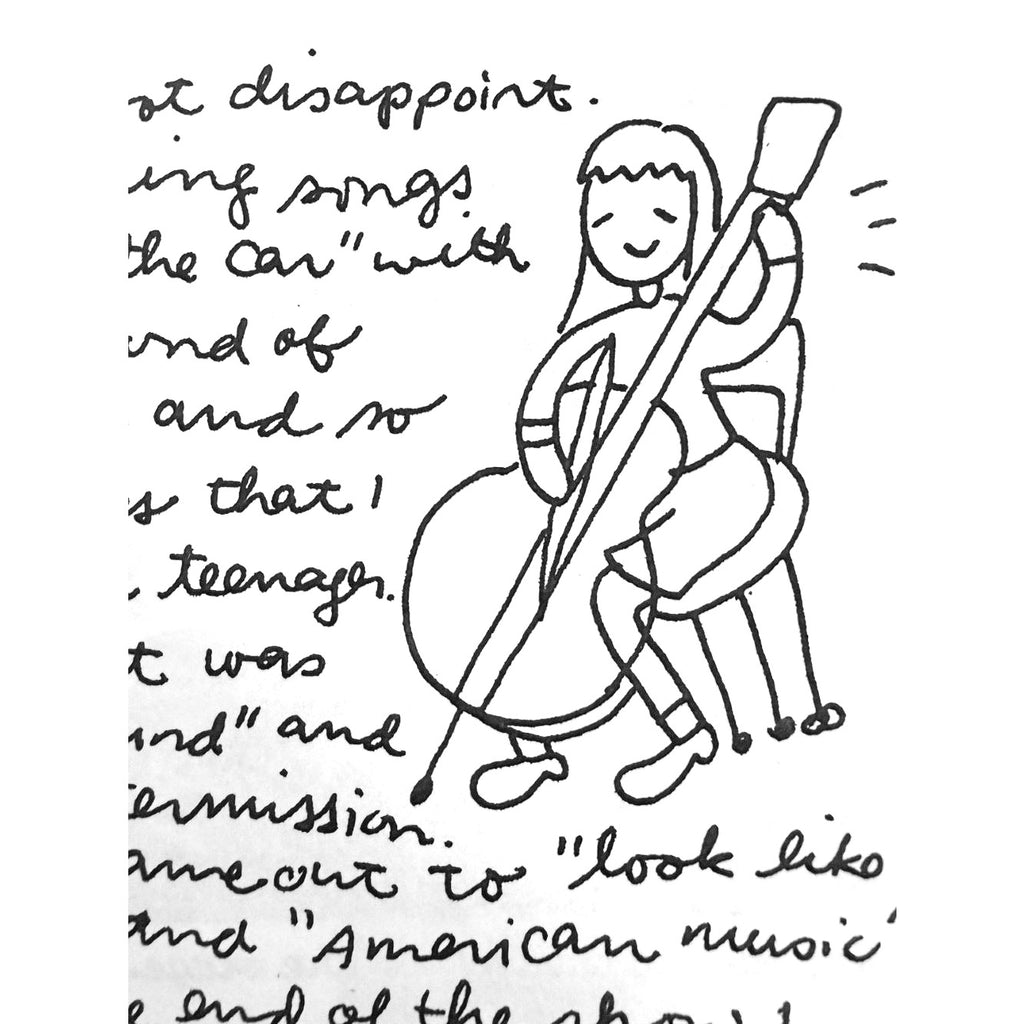 ot disappoint.
ing songs
the car" with
and of
and so
s that I
teenager.
t was
und" and
termission.
ame out to "look like
and "American music"
end of the show I